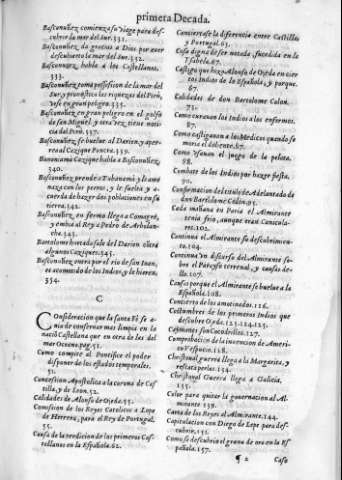 primera Decada.
Basconuñez comiença su viage para des-
cubrir la mar del Sur. 331.
Basconuñez da gracias a Dios por auer
descubierto la mar del Sur. 332.
Basconuñez habla a los Castellanos.
333.
Basconuñez toma possession de la mar del
Sur, y
riquezas del Pirù,
y esse en gran peligro. 335.
Basconuñez en gran peligro en el golfo
de San Miguel, y
vez tiene noti-
cia del Pirù. 337.
Basconuñez se buelue al Darien, y aper-
rea al Cazique Poncra. 339.
Bononiama Cazique habla a Basconuñez.
340.
Basconuñez prende a Tubanamà, y le ame
naza con los perros, y le suelta y a-
cuerda de hazer dos poblaciones en su
tierra. 342.
Basconuñez en fermo llega a Comagre,
y embia al Rey a Pedro de Arbolan-
cha. 343.
Bartolome hurtado sale del Darien contra
algunos Caziques. 345.
Basconuñez entra por el rio de san Iuan,
es acometido de los Indios, y le hieren.
354.
C
Consideracion que la santa Fè se a-
uia de conseruar mas limpia en la
naciõ Castellana que en otra de las del
mar Oceano. pag. 51.
Como compite al Pontifice el poder
disponer de los estados temporales.
51.
Concession Apostolica a la corona de Cas-
tilla, y de Leon. 52.
Calidades de Alonso de Ojeda. 55.
Comission de los Reyes Catolicos a Lope
de Herrera, para el Rey de Portugal.
55.
Causa de la perdicion de los primeros Cas-
tellanos en la Española. 62.
Concertose la diferencia entre Castilla
y Portugal. 63.
Cosa digna de ser notada, sucedida en la
Isabela. 67.
Castigo que haze Alonso de Ojeda en cier
tos Indios de la Española, y porque.
67.
Calidades de don Bartolome Colon.
73.
Como curauan los Indios a los enfermos.
87.
Como castigauan a los Medicos quando se
moria el doliente. 87.
Como vsauan el juego de la pelota.
88.
Combate de los Indios por hazer fiesta.
90.
Confirmacion del titulo de Adelantado de
don Bartolome Colon. 95.
Cada mañana en Paria el Almirante
tenia frio, aunque eran Canicula-
res. 102.
Continua el Almirante su descubrimien-
to. 104.
Continua vn discurso del Almirante so-
bre el Parayso terrenal, y causas de-
llo. 107.
Causas porque el Almirante se buelue a la
Española. 108.
Concierto de los amotinados. 116.
Costumbres de los primeros Indios que
descubre Ojeda. 123. 124. 125.
Caymanes son Cocodrillos. 127.
Comprobacion de la inuencion de Ameri-
co Vespucio. 128.
Christoual guerra llega a la Margarita, y
rescata perlas. 134.
Christoual Guerra llega a Galicia,
135.
Color para quitar la gouernacion al Al-
mirante. 139.
Carta de los Reyes al Almirante. 144.
Capitulacion con Diego de Lepe para des-
cubrir. 152.
Como se descubrio el grano de oro en la Es
pañola. 157.
¶ 2
Caso